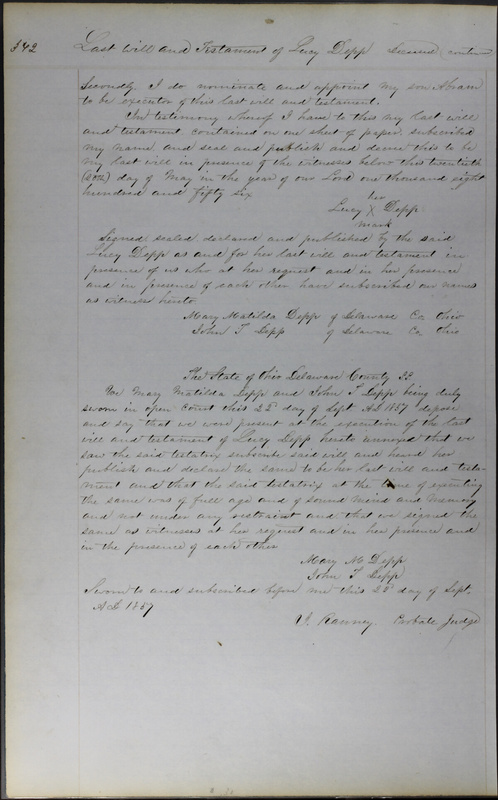 342 Last will and Testament of Lucy Depp Deceased (contin
Secondly. I do nominate and appoint my son Abram
to be executor of this last will and testament.
In testimony whereof I have to this my last will
and testament contained on one sheet of paper subscribed
my name and seal and publish and decree this to be
my last will in presence of the witnesses below this twentieth
(20th) day of May in the year of our Lord one thousand eight
hundred and fifty six
her
Lucy X Depp.
mark
Signed sealed declared and published by the said
Lucy Depp as and for her last will and testament in
presence of us who at her request and in her presence
and in presence of each other have subscribed our names
as witness hereto
Mary Matilda Depp of Delaware Co. Ohio
John T Depp of Delaware Co. Ohio
The State of Ohio Delaware County SS
We Mary Matilda Depp and John T Depp being duly
sworn in open Court this 22d day of Sept AD 1857 depose
and say that we were present at the execution of the last
will and testament of Lucy Depp hereto annexed that we
saw the said testatrix subscribe said will and heard her
publish and declare the same to be her last will and testa-
ment and that the said testatrix at the time of executing
the same was of full age and of sound mind and memory
and not under any restraint and that we signed the
same as witnesses at her request and in her presence and
in the presence of each other
Mary M Depp
John T Depp
Sworn to and subscribed before me this 22d day of Sept.
AD 1857
Ranney. Probate Judge